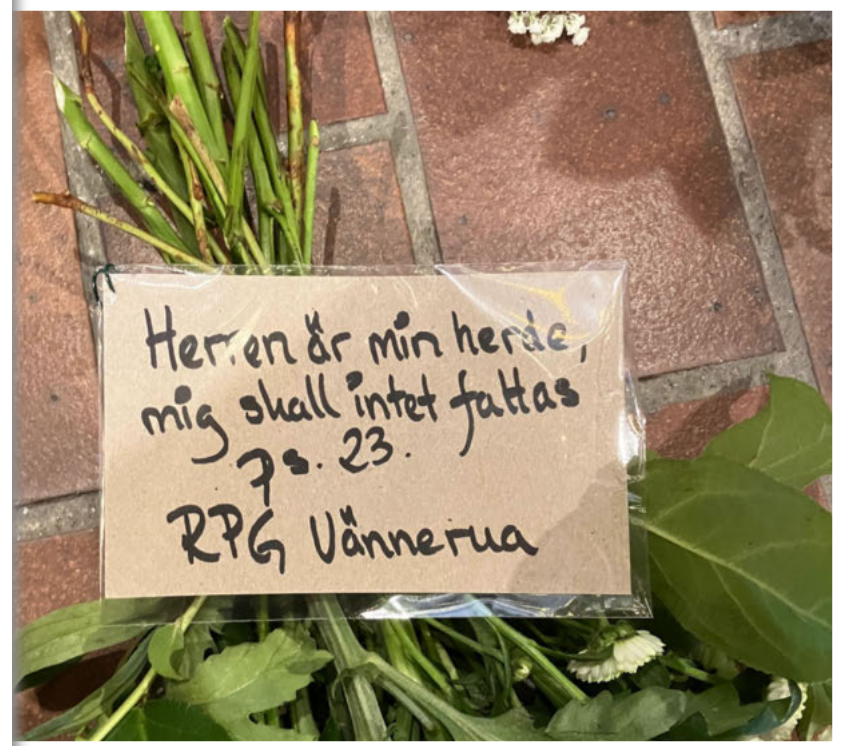 Herren är min herde,
mig skall intet fattas
Ps. 23.
RPG Vännerua